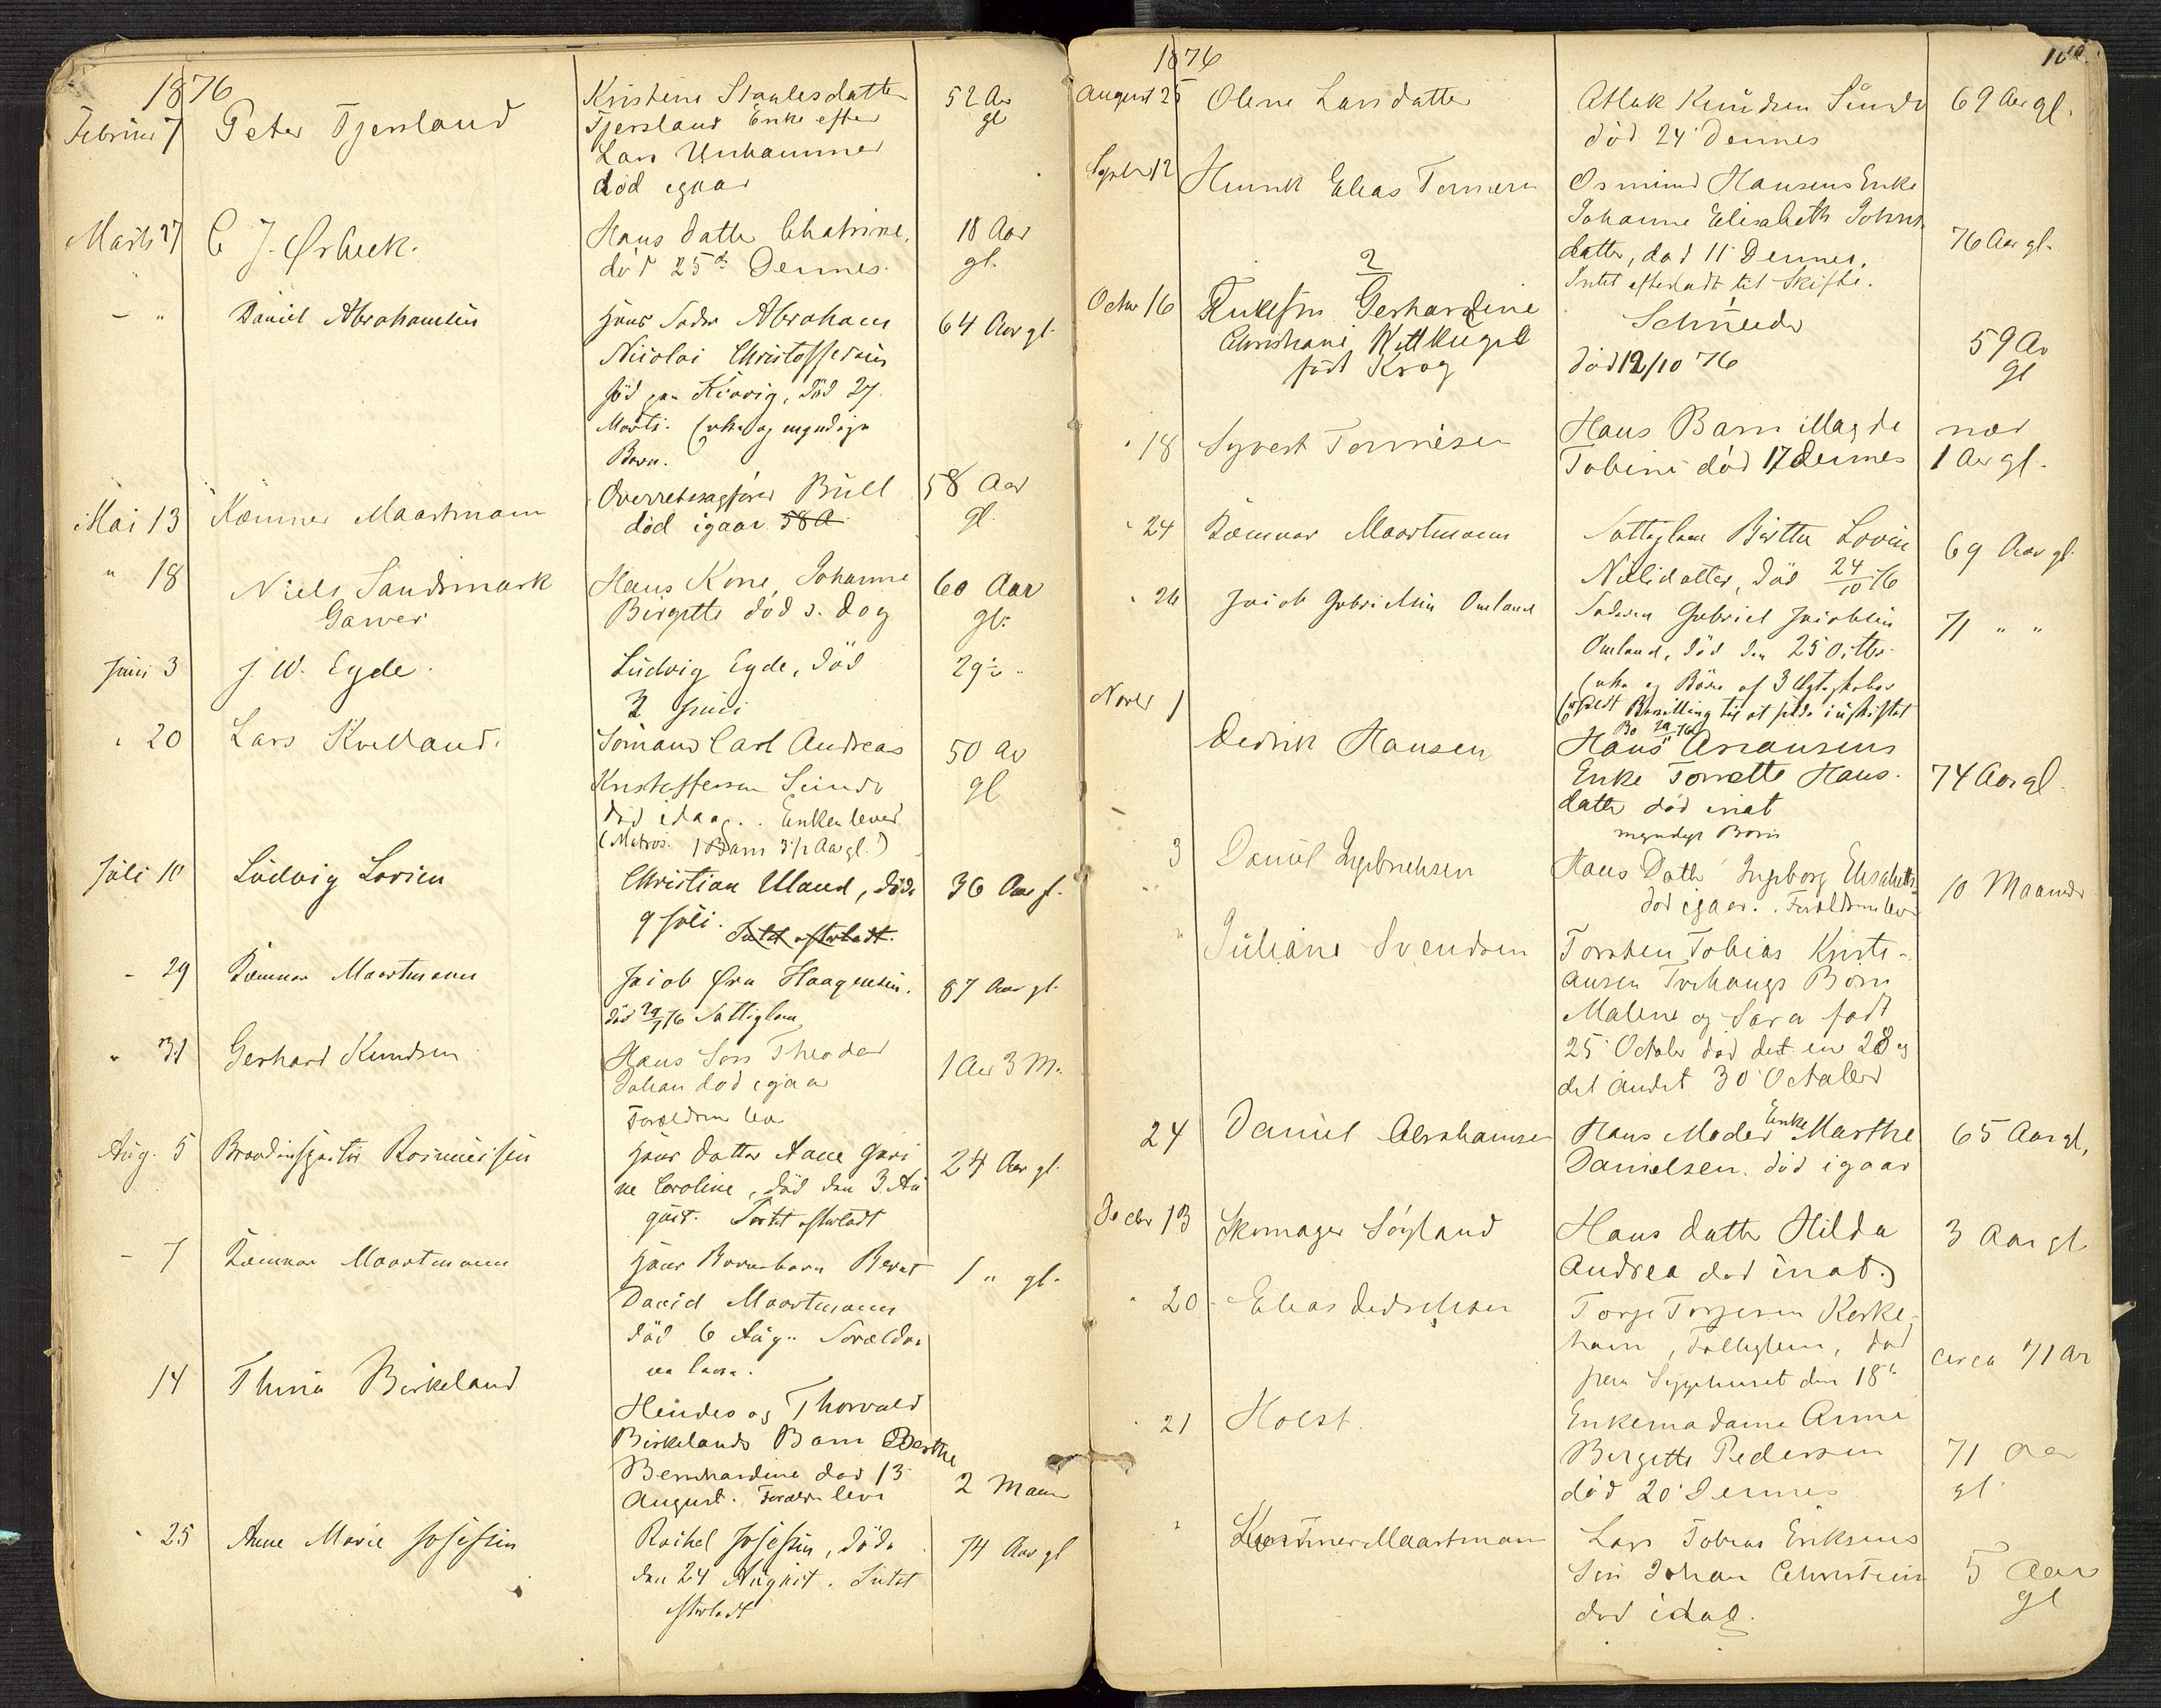 1876
Februar 7 Peter Tjersland Kristine Staalesdatter 52 Aar
Tjersland Enke efter gl
Lars Unhammer
død igaar
Marts 27 C J. Ørbeck. Hans datter Chatrine, 18 Aar
død 25de Dennes. gl.
- " Daniel Abrahamsen Hans Fader Abraham 64 Aar gl.
Nicolai Christoffersen
død 27
Marts. Enke og myndige
Børn.
Mai 13 Kæmner Maartmann Overretssagfører Bull 58 Aar
død igaar 58 A gl.
" 18 Niels Sandsmark Hans Kone, Johanne 60 Aar
Garver Birgitte død s. Dag gl.
Juni 3 J. W. Eyde. Ludvig Eyde, død 29 " .
2 Juni
" 20 Lars Kvelland. Sømand Carl Andreas 50 Ar
Kristoffersen Sunde gl
død idaag. . Enken lever
(Matros. 1 Barn 3 1/2 Aar gl.)
Juli 10 Ludvig Lovien Christian Uland, døde 36 Aar gl.
9 Juli. Intet efterladt.
- 29 Kæmner Maartmann Jacob Øra Haagensen. 87 Aar gl.
død 29/7 76 Fattiglem
" 31 Gerhard Knudsen Hans Søn Theodor 1 Aar 3 M.
Johan død igaar
Forældrene lever
Aug. 5 Brandinspectør Rasmussen Hans Datter Anne Guri 24 Aar gl.
ne Caroline, død den 3 Au
gust. Intet efterladt
- 7 Kæmner Maartmann Hans Barnebarn Bernt 1 " gl.
David Maartmann
død 6 Aug. Forældre
ne leve.
14 Thina Birkeland Hendes og Thorvald
Birkelands Barn Berthe
Bernhardine død 13 2 Maan
August. Forældre leve
" 25 Anne Marie Josefsen Rachel Josefsen, døde 74 Aar gl
den 24 August. Intet
efterladt
1876 100.
August 25 Olene Larsdatter Atlak Knudsen Sunde 69 Aar gl.
død 24' Dennes
Septbr 12 Henrik Elias Tønnesen Osmund Hansens Enke
Johanne Elisabeth Johns
datter, død 11' Dennes. 76 Aar gl.
Intet efterladt til Skifte.
2
Octbr 16 Enkefru Gerhardine Schneider
Christiane 59 Ar
født Krog død 12/10 76 gl
" 18 Syvert Tønnesen Hans Barn Magda nær
Tobine død 17 dennes 1 Aar gl.
" 24 Kæmner Maartmann Fattiglem Birthe Lovise 69 Aar gl.
Nielsdatter, død 24/10 76
" 26 Jacob Gabrielsen Omland Faderen Gabriel Jacobsen 71 " "
Omland, død den 25 Octbr.
Enke og Børn af 3 Ægteskaber
Bevilling til at sidde i uskiftet
Bo 29/11 76
Novbr 1 Dedrik Hansen Hans Arransens
Enke Torrette Hans- 74 Aar gl.
datter død inat
myndige Børn
3 Daniel Ingebrethsen Hans Datter Ingeborg Elisabeth 10 Maaneder
død igaar. . Forældrene lever
" Juliane Svendsen Torsten Tobias Kristi-
ansen Tvihaugs Børn
Malene og Sara født
25' October død det ene 28 og
det andet 30' October
24 Daniel Abrahamsen Hans Moder Enke Marthe 65 Aar gl,
Danielsen. død igaar
Decbr 13 Skomager Søyland Hans datter Hilda 3 Aar gl
Andrea død inat.
" 20 Elias Didriksen Torge Torgersen Kirke-
havn, Fattiglem, død circa 71 Ar
paa Sygehuset den 18de
" 21 Holst. Enkemadame Anne
Birgitte Pedersen 71 Aar
død 20' Dennes gl
" Kæmner Maartman Lars Tobias Eriksens
Søn Johan Christian 5 Aar
død idag. gl